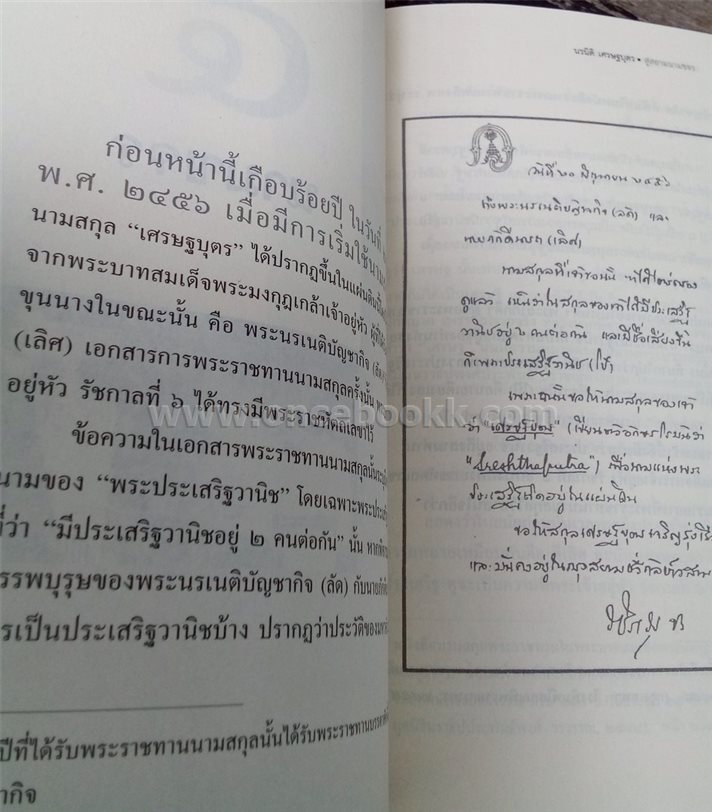 ๔
ก่อนหน้านี้เกือบร้อยปี ในวันที่
พ.ศ. ๒๔๕๖ เมื่อมีการเริ่มใช้นาม
นามสกุล “เศรษฐบุตร” ได้ปรากฏขึ้นในแผ่นดิน
จากพระบาทสมเด็จพระมงกุฎเกล้าเจ้าอยู่หัว
ขุนนางในขณะนั้น คือ พระนรเนติบัญชากิจ (ลัด)
(เลิศ) เอกสารการพระราชทานนามสกุลครั้งนั้น
อยู่หัว รัชกาลที่ ๖ ได้ทรงมีพระราชหัตถเลขาไว้
ข้อความในเอกสารพระราชทานนามสกุลนั้น
นามของ “พระประเสริฐวานิช” โดยเฉพาะ
ที่ว่า “มีประเสริฐวานิชอยู่ ๒ คนต่อกัน” นั้น
รรพบุรุษของพระนรเนติบัญชากิจ (ลัด) กับนาย
รเป็นประเสริฐวานิชบ้าง ปรากฏว่าประวัติของ
ปีที่ได้รับพระราชทานนามสกุลนั้นได้รับพระราชทาน
ากิจ
นรนิติ เศรษฐบุตร •
วันที่ ๒๐ มิถุนายน ๒๔๕๖
ถึงพระนรเนติบัญชากิจ (ลัด) และ
(เลิศ)
นามสกุลที่เจ้าขอมานั้น
ดูแล้ว เห็นว่าในสกุลของเจ้าได้มีประเสริฐ
วานิชอยู่ ๒ คนต่อกัน และมีชื่อเสียงขึ้น
ประเสริฐวานิช
เพราะฉะนั้นขอให้นามสกุลของเจ้า
ว่า “เศรษฐบุตร” (เขียนตัวอักษรโรมันว่า
“Sreshthaputra”) เพื่อ
ประเสริฐ อยู่ในแผ่นดิน
ขอให้สกุลเศรษฐบุตรเจริญรุ่งเรือ
และมั่นคงอยู่ในกรุงสยาม
www.oncebookk.com